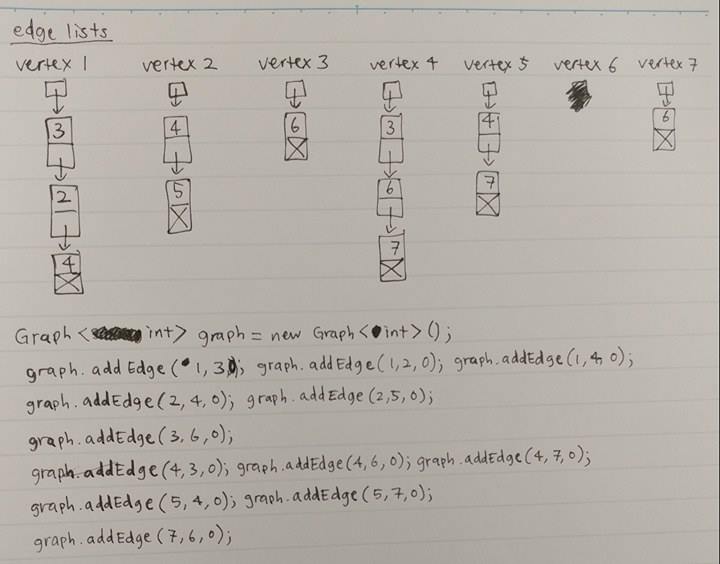 edge lists
vertex 1 vertex 2 vertex 3 vertex 4 vertex 5 vertex 6 vertex 7
3 4 6 3 4 6
2 5 6 7
4 7
Graph <int> graph = new Graph<int>();
graph.addEdge(1,3,0); graph.addEdge(1,2,0); graph.addEdge(1,4,0);
graph.addEdge(2,4,0); graph.addEdge(2,5,0);
graph.addEdge(3,6,0);
graph.addEdge(4,3,0); graph.addEdge(4,6,0); graph.addEdge(4,7,0);
graph.addEdge(5,4,0); graph.addEdge(5,7,0);
graph.addEdge(7,6,0);